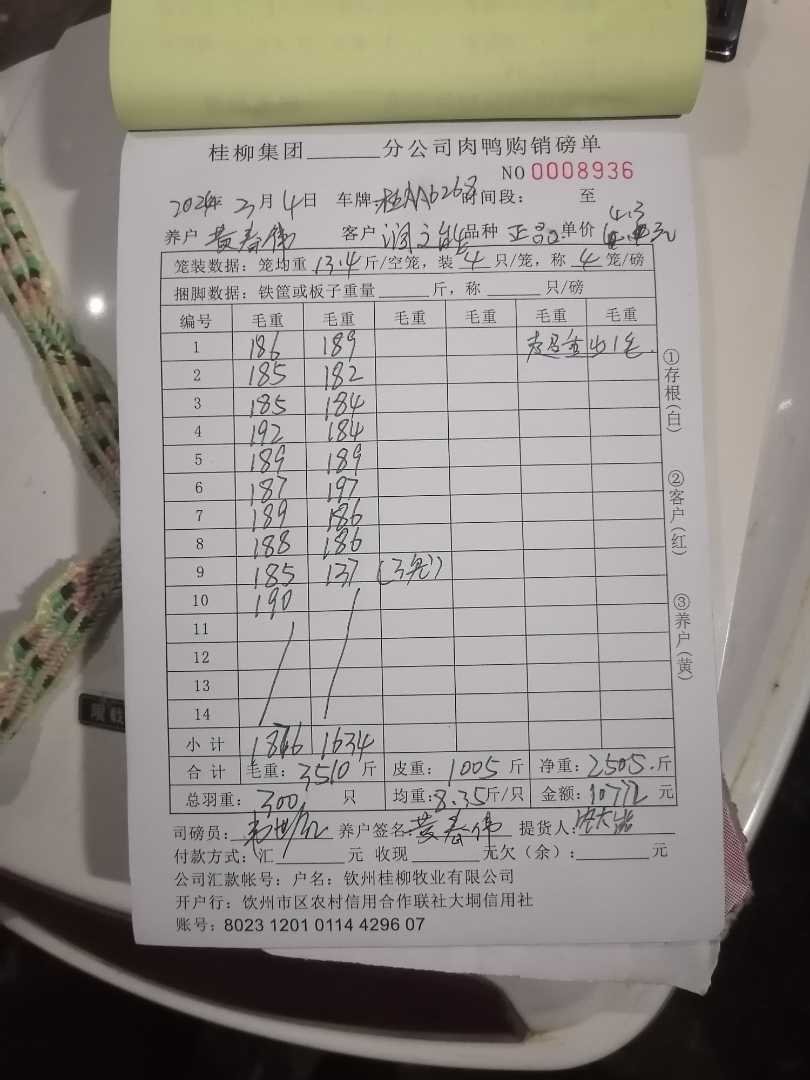 桂柳集团______分公司肉鸭购销磅单
NO 0008936
2024年3月4日 车牌:桂AA6268时间段: 至
养户 黄春伟 客户 润之能 品种 正品 单价 4.3元
笼装数据: 笼均重 13.4 斤/空笼, 装 4 只/笼, 称 4 笼/磅
捆脚数据: 铁筐或板子重量______斤, 称______只/磅
编号 毛重 毛重 毛重 毛重 毛重 毛重
1 186 189
2 185 182
3 185 184
4 192 184
5 189 189
6 187 197
7 189 186
8 188 186
9 185 137 (3笼)
10 190
11
12
13
14
小计 1876 1634
合计 毛重: 3510 斤 皮重: 1005 斤 净重: 2505.斤
总羽重: 300 只 均重: 8.35斤/只 金额: 10772 元
司磅员: 养户签名: 黄春伟 提货人:
付款方式: 汇______元 收现______元欠(余):______元
公司汇款帐号: 户名: 钦州桂柳牧业有限公司
开户行: 钦州市区农村信用合作联社大垌信用社
账号: 8023 1201 0114 4296 07
①存根(白)
②客户(红)
③养户(黄)